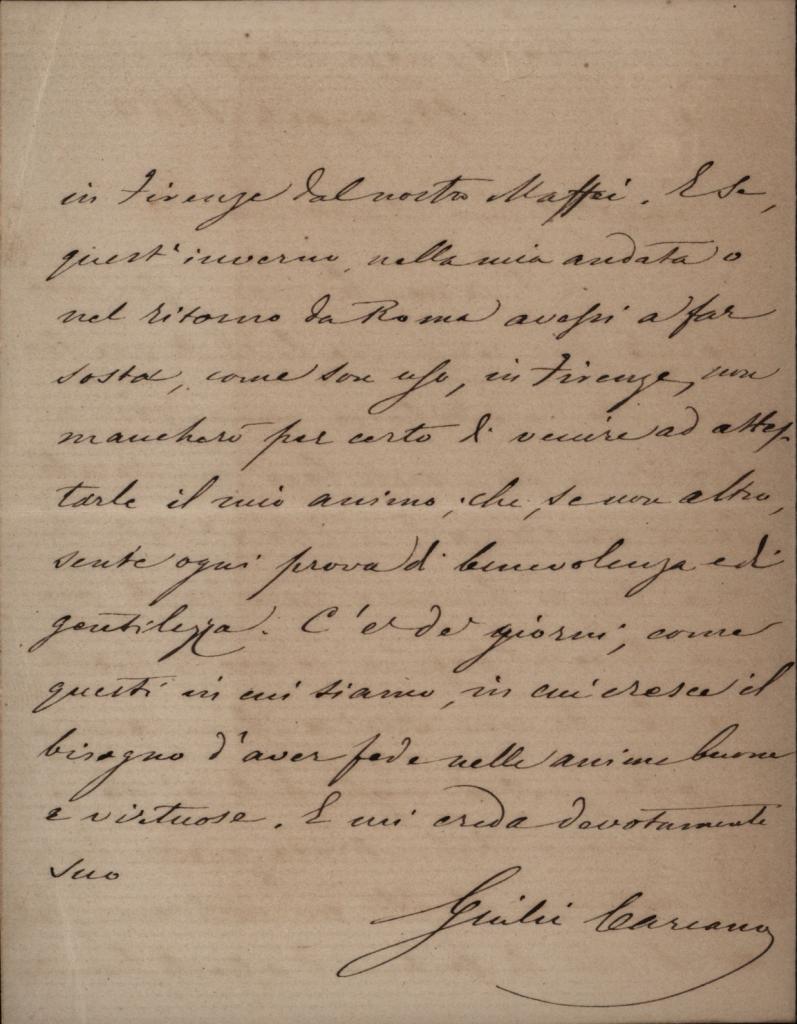 in Firenze dal nostro Maffei. E se,
quest'inverno, nella mia andata o
nel ritorno da Roma avessi a far
sosta, come son uso, in Firenze, non
mancherò per certo di venire ad attes-
tarle il mio animo; che, se non altro,
sente ogni prova di benevolenza e di
gentilezza. C'è de' giorni, come
questi in cui siamo, in cui cresce il
bisogno d'aver fede nelle anime buone
e virtuose. E mi creda devotamente
suo
Giulio Carcano